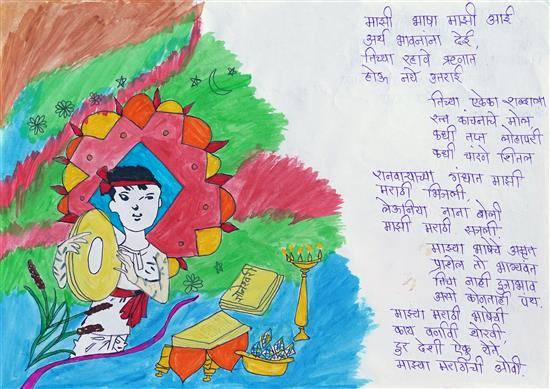 माझी भाषा माझी आई
अर्थ भावनांना देई,
तिच्या रहावे ऋणात
होऊ नये उतराई
तिच्या ऐकेका शब्दाला
रत्न कांचनाचे मोल
कधी तप्त लोहापरी
कधी चांदणे शितल
रानवाऱ्याच्या गंधात माझी
मराठी भिजली,
लेऊनिया नाना बोली
माझी मराठी सजली,
माझ्या भाषेचे अमृत
प्राशेल तो भाग्यवंत
तिचा नाही दुजाभाव
असो कोणताही पंथ.
माझ्या मराठी भाषेची
काय वर्णावी थोरवी,
दुर देशी ऐकु येते,
माझ्या मराठीची ओवी.
ज्ञानेश्वरी